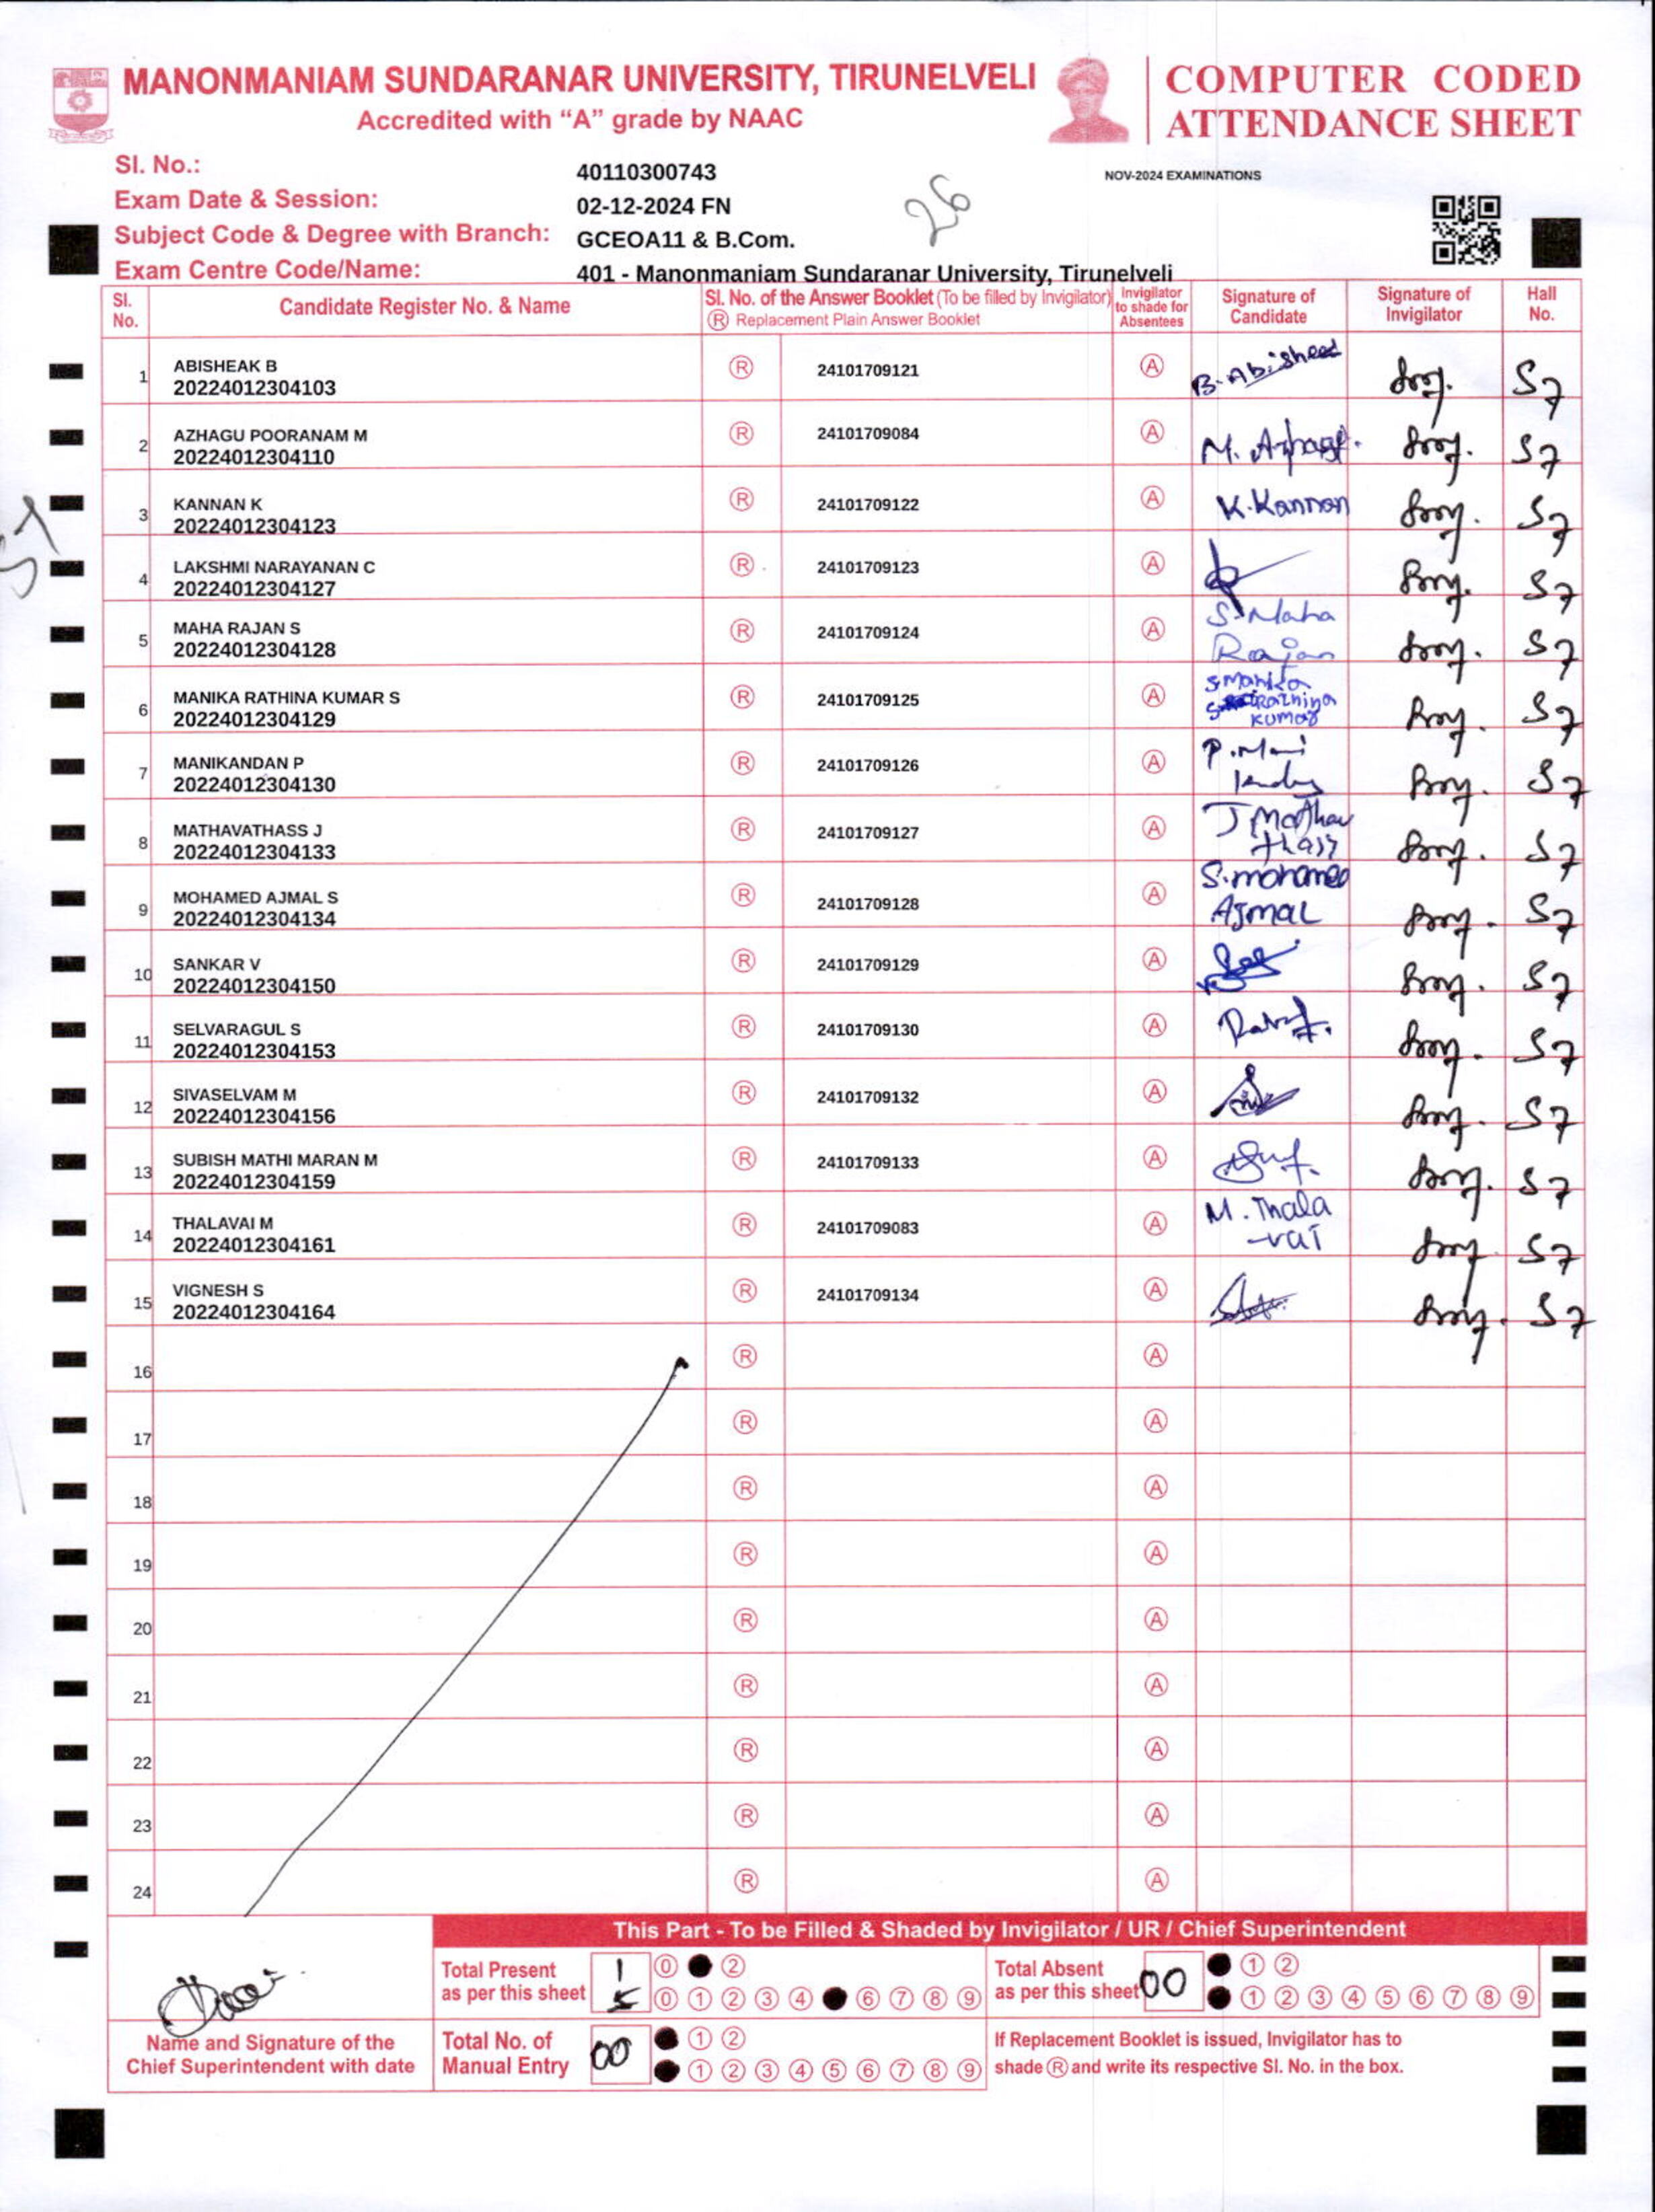 MANONMANIAM SUNDARANAR UNIVERSITY, TIRUNELVELI
Accredited with “A” grade by NAAC
COMPUTER CODED
ATTENDANCE SHEET
Sl. No.: 40110300743
NOV-2024 EXAMINATIONS
Exam Date & Session: 02-12-2024 FN
26
Subject Code & Degree with Branch: GCEOA11 & B.Com.
Exam Centre Code/Name: 401 - Manonmaniam Sundaranar University, Tirunelveli
Sl. No. Candidate Register No. & Name Sl. No. of the Answer Booklet (To be filled by Invigilator) Ⓡ Replacement Plain Answer Booklet Invigilator to shade for Absentees Signature of Candidate Signature of Invigilator Hall No.
1 ABISHEAK B 20224012304103 Ⓡ 24101709121 Ⓐ B. Abisheak S7
2 AZHAGU POORANAM M 20224012304110 Ⓡ 24101709084 Ⓐ M. Azhagu. S7
3 KANNAN K 20224012304123 Ⓡ 24101709122 Ⓐ K. Kannan S7
4 LAKSHMI NARAYANAN C 20224012304127 Ⓡ 24101709123 Ⓐ S7
5 MAHA RAJAN S 20224012304128 Ⓡ 24101709124 Ⓐ S. Maha Rajan S7
6 MANIKA RATHINA KUMAR S 20224012304129 Ⓡ 24101709125 Ⓐ S Manika Rathina Kumar S7
7 MANIKANDAN P 20224012304130 Ⓡ 24101709126 Ⓐ P. Mani S7
8 MATHAVATHASS J 20224012304133 Ⓡ 24101709127 Ⓐ J Mathav thass S7
9 MOHAMED AJMAL S 20224012304134 Ⓡ 24101709128 Ⓐ S. mohamed AJMAL S7
10 SANKAR V 20224012304150 Ⓡ 24101709129 Ⓐ S7
11 SELVARAGUL S 20224012304153 Ⓡ 24101709130 Ⓐ S7
12 SIVASELVAM M 20224012304156 Ⓡ 24101709132 Ⓐ S7
13 SUBISH MATHI MARAN M 20224012304159 Ⓡ 24101709133 Ⓐ S7
14 THALAVAI M 20224012304161 Ⓡ 24101709083 Ⓐ M. Thala-vai S7
15 VIGNESH S 20224012304164 Ⓡ 24101709134 Ⓐ S7
16 Ⓡ Ⓐ
17 Ⓡ Ⓐ
18 Ⓡ Ⓐ
19 Ⓡ Ⓐ
20 Ⓡ Ⓐ
21 Ⓡ Ⓐ
22 Ⓡ Ⓐ
23 Ⓡ Ⓐ
24 Ⓡ Ⓐ
This Part - To be Filled & Shaded by Invigilator / UR / Chief Superintendent
Total Present as per this sheet 1 5
0 2
0 1 2 3 4 6 7 8 9
Total Absent as per this sheet 00
1 2
1 2 3 4 5 6 7 8 9
Name and Signature of the
Chief Superintendent with date
Total No. of Manual Entry 00
1 2
1 2 3 4 5 6 7 8 9
If Replacement Booklet is issued, Invigilator has to
shade Ⓡ and write its respective Sl. No. in the box.